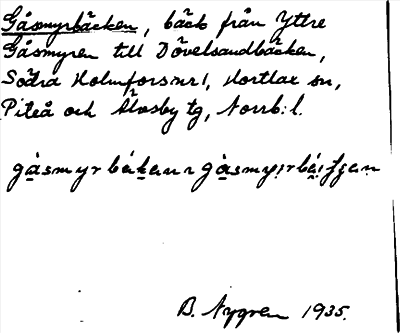 Gåsmyrbäcken, bäck från Yttre
Gåsmyren till Dövelsandbäcken,
Södra Holmfors nr 1, Hortlax sn,
Piteå och Älvsby tg, Norrb:l.
B. Nygren 1935.